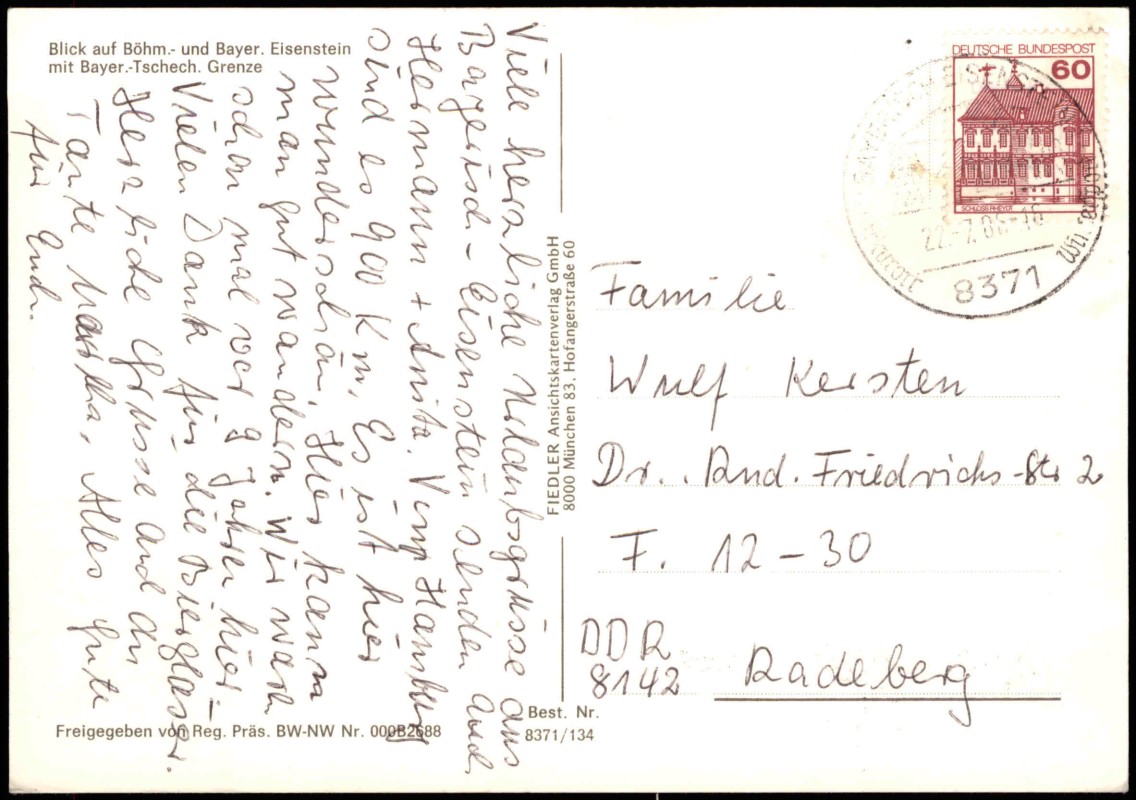 Blick auf Böhm.- und Bayer. Eisenstein
mit Bayer.-Tschech. Grenze
Viele herzliche Urlaubsgrüsse aus
Bayerisch-Eisenstein senden Euch
Hermann + Anita. Von Hamburg
sind es 900 Km. Es ist hier
wunderschön. Hier kann
man gut wandern. Wir waren
schon mal vor 9 Jahren hier
Vielen Dank für die Biergläser.
Herzliche Grüsse auch an
Tante Martha. Alles Gute
für Euch.
Freigegeben von Reg. Präs. BW-NW Nr. 000B2688
Best. Nr.
8371/134
FIEDLER Ansichtskartenverlag GmbH
8000 München 83, Hofangerstraße 60
DEUTSCHE BUNDESPOST
60
SCHLOSS RHEYDT
22.-7.86-16
8371
Familie
Wulf Kersten
Dr.. Rud. Friedrichs-Str 2
F. 12-30
DDR
8142 Radeberg